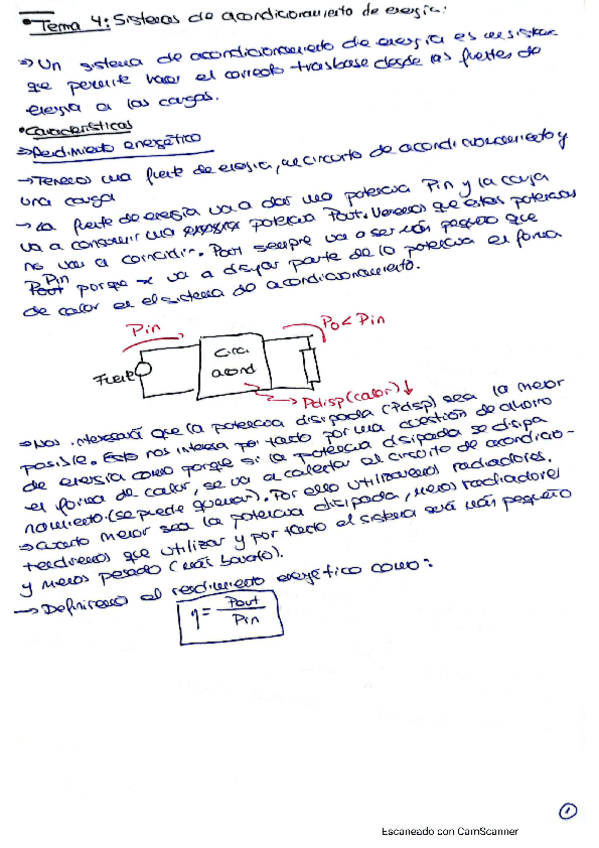 • Tema 4: Sistemas de acondicionamiento de energía:
⇒ Un sistema de acondicionamiento de energía es un sistema
que permite hacer el correcto trasbase desde las fuentes de
energía a las cargas.
• Características
⇒ Rendimiento energético
→ Tenemos una fuente de energía, un circuito de acondicionamiento y
una carga
→ La fuente de energía va a dar una potencia Pin y la carga
va a consumir una potencia Pout. Veremos que estas potencias
no van a coincidir. Pout siempre va a ser más pequeño que
Pin porque se va a disipar parte de la potencia en forma
de calor en el sistema de acondicionamiento.
Pin
Po < Pin
Fuente
Circ.
acond
Pdisp (calor) ↓
⇒ Nos interesará que la potencia disipada (Pdisp) sea la menor
posible. Esto nos interesa por tanto por una cuestión de ahorro
de energía como porque si la potencia disipada se disipa
en forma de calor, se va a calentar el circuito de acondicio-
namiento. (se puede quemar). Por ello utilizaremos radiadores.
⇒ Cuanto menor sea la potencia disipada, menos radiadores
tendremos que utilizar y por tanto el sistema será más pequeño
y menos pesado (más barato).
→ Definiremos el rendimiento energético como:
η = Pout / Pin
1
Escaneado con CamScanner